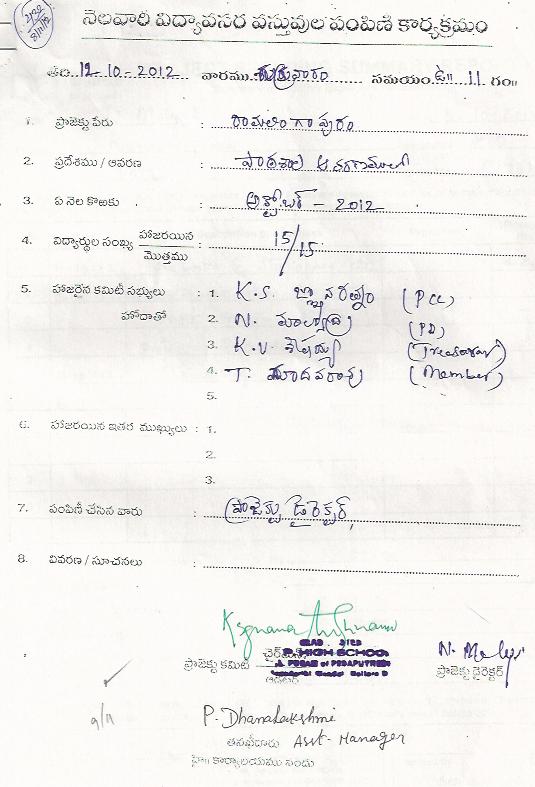 నెలవారీ విద్యావసర వస్తువుల పంపిణీ కార్యక్రమం
తేది. 12-10-2012 వారము. శుక్రవారం సమయం. ఉ॥ 11 గం॥
1. ప్రాజెక్టు పేరు : రామలింగాపురం
2. ప్రదేశము / ఆవరణ : పాఠశాల ఆవరణములో
3. ఏ నెల కొఱకు : అక్టోబర్ - 2012
4. విద్యార్థుల సంఖ్య హాజరయిన / మొత్తము : 15/15
5. హాజరైన కమిటీ సభ్యులు : 1. K.S. జ్ఞానరత్నం (PCC)
హోదాతో 2. N. మాల్యాద్రి (PD)
3. K.V. శేషయ్య (Treasurar)
4. T. మాదవరావు (Member)
5.
6. హాజరయిన ఇతర ముఖ్యులు : 1.
2.
3.
7. పంపిణీ చేసిన వారు : ప్రాజెక్టు డైరెక్టర్,
8. వివరణ / సూచనలు :
చైర్‌మన్
P. HIGH SCHOOL
ప్రాజెక్టు కమిటీ
ప్రాజెక్టు డైరెక్టర్
ఆడిటర్
P. Dhanalakshmi
తనిఖీదారు Asst-Manager
హై॥ కార్యాలయము నందు